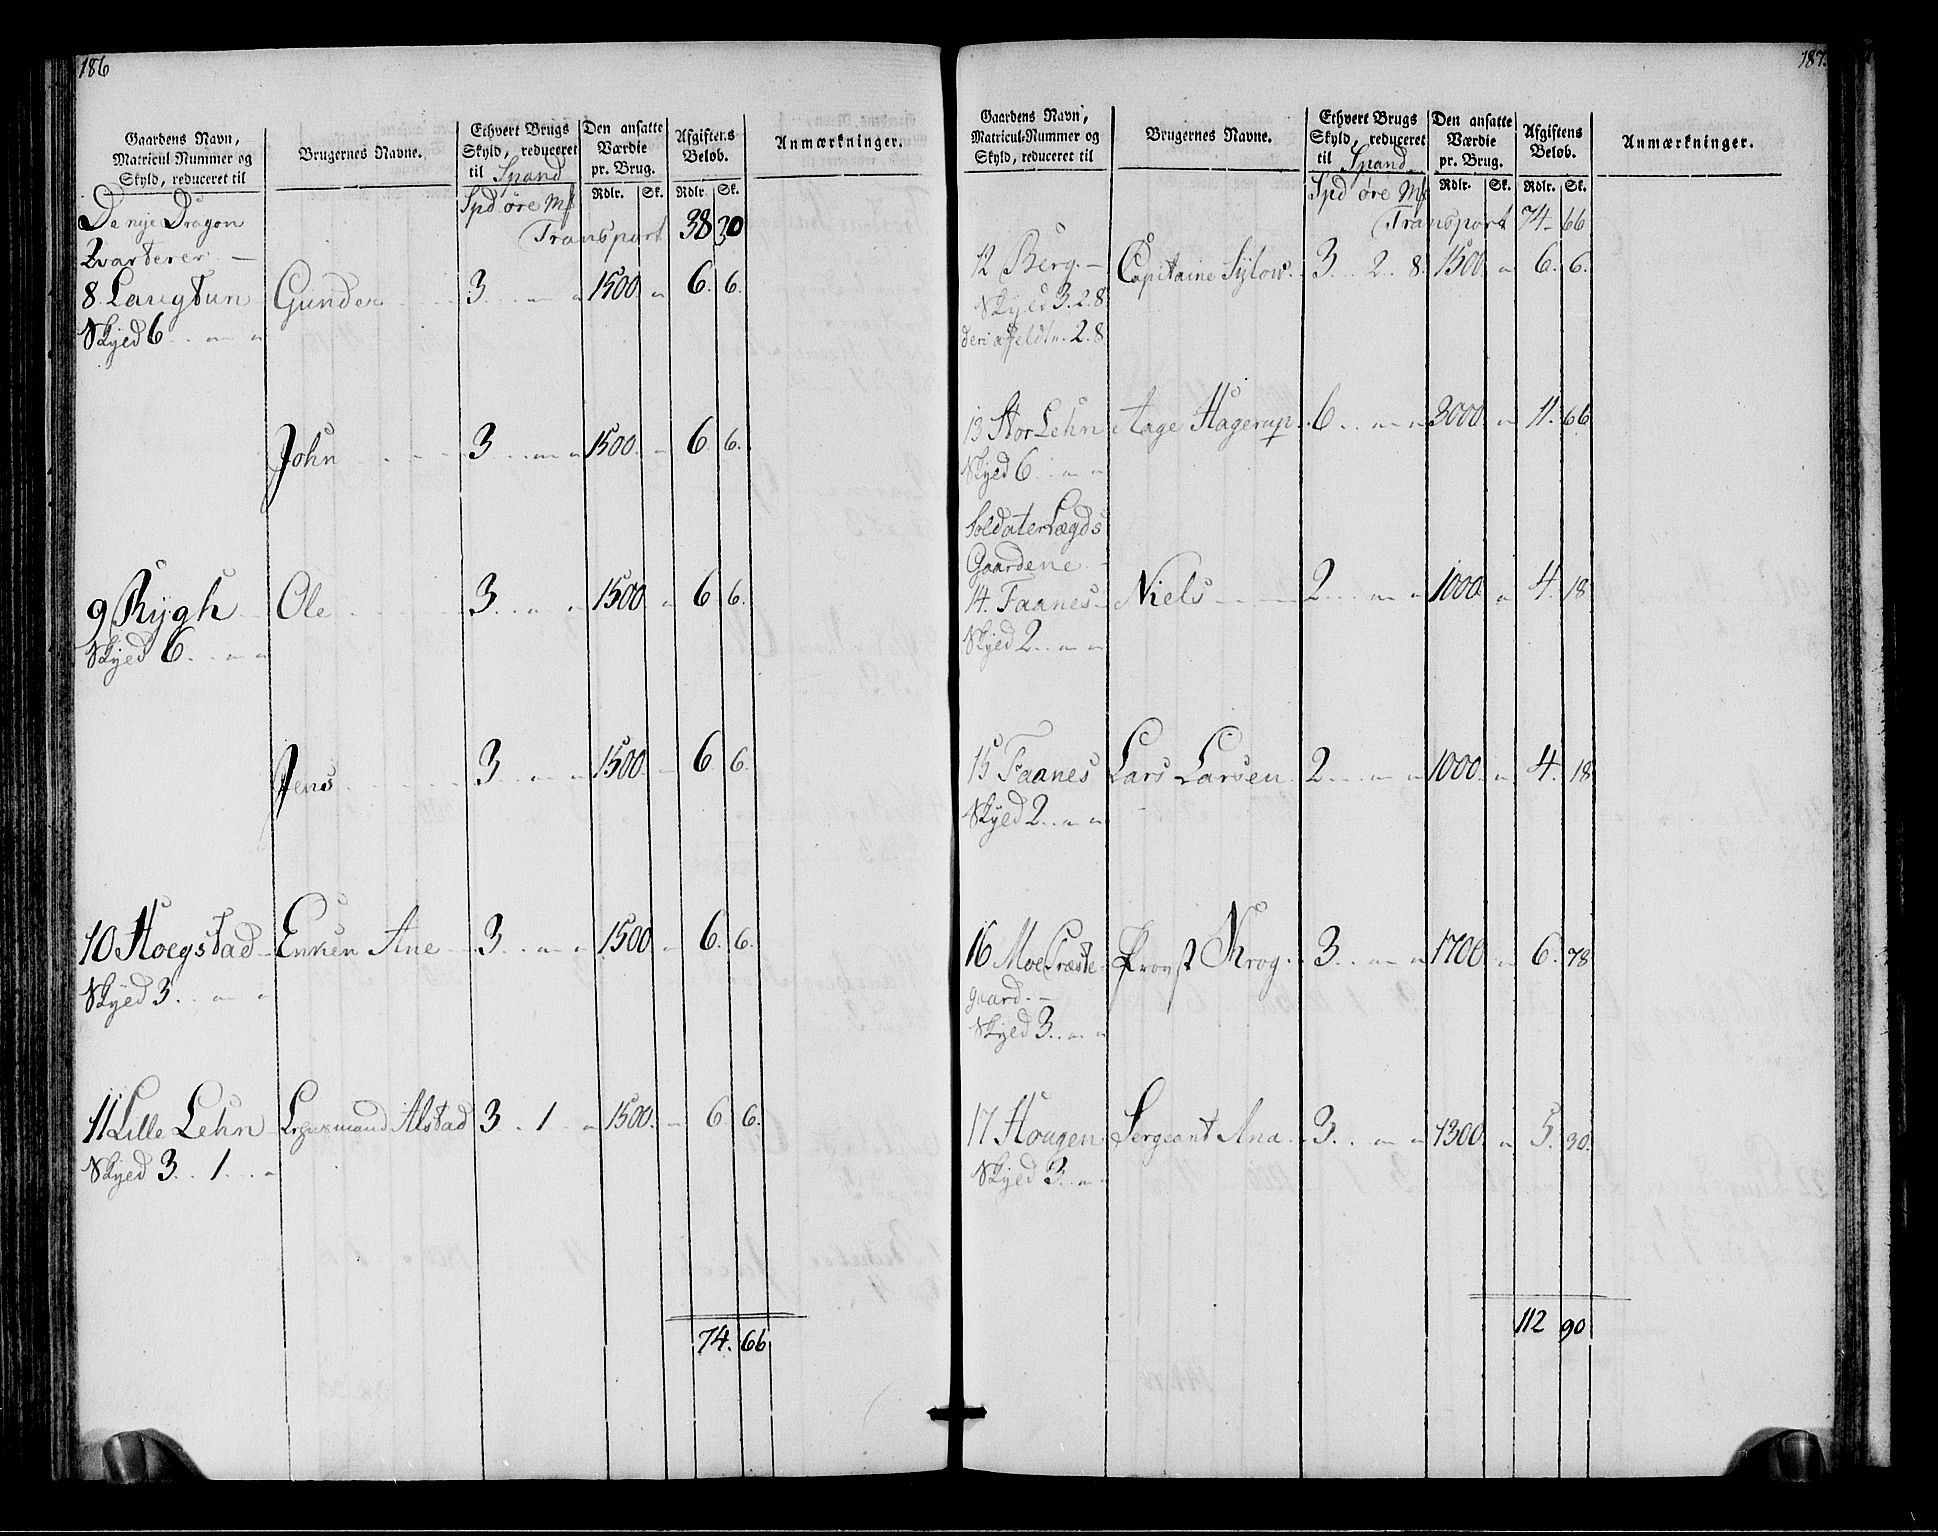 186
Gaardens Navn,
Matricul Nummer og
Skyld, reduceret til
Brugernes Navne.
Ethvert Brugs
Skyld, reduceret
til Spand
Den ansatte
Værdie
pr. Brug.
Afgiftens
Beløb.
Anmærkninger.
Spd øre Mk Rdlr. Sk. Rdlr. Sk.
De nye Dragon Transport 38 30
Qvarterer —
8 Langtun Gunder 3 . „ „ 1500 „ 6. 6.
Skyed 6 . „ „
John 3 . „ „ 1500 „ 6 6.
9 Rygh Ole 3 . „ „ 1500 „ 6 6.
Skyed 6 . „ „
Jens 3 . „ „ 1500 „ 6 6.
10 Hoegstad Enken Ane 3 . „ „ 1500 „ 6. 6.
Skyed 3 . „ „
11 Lille Lehn Alstad 3 . 1 . „ 1500. „ 6 6.
Skyed 3 . 1 . „
74. 66
187.
Gaardens Navn,
Matricul-Nummer og
Skyld, reduceret til
Brugernes Navne.
Ethvert Brugs
Skyld, reduceret
til Spand
Den ansatte
Værdie
pr. Brug.
Afgiftens
Beløb.
Anmærkninger.
Spd øre Mk Rdlr. Sk. Rdlr. Sk.
Transport 74 66
12 Berg — Capitaine Sylow. 3 . 2 . 8. 1500. „ 6. 6.
Skyed 3. 2. 8
deri 2. 8.
13 Stor Lehn Aage Hagerup. 6 . „ „ 3000. „ 11. 66
Skyed 6 . „ „
Soldater Lægds
Gaardene
14. Faanes Niels 2 . „ „ 1000. „ 4. 18
Skyed 2 . „ „
15 Faanes Lars Larsen 2 . „ „ 1000. „ 4. 18
Skyed 2 . „ „
16 Moe Præste- Provst Krog. 3 . „ „ 1700 „ 6. 78
gaard. —
Skyed 3 . „ „
17 Hougen Sergeant Ana 3 . „ „ 1300. „ 5. 30.
Skyed 3 . „ „
112 90